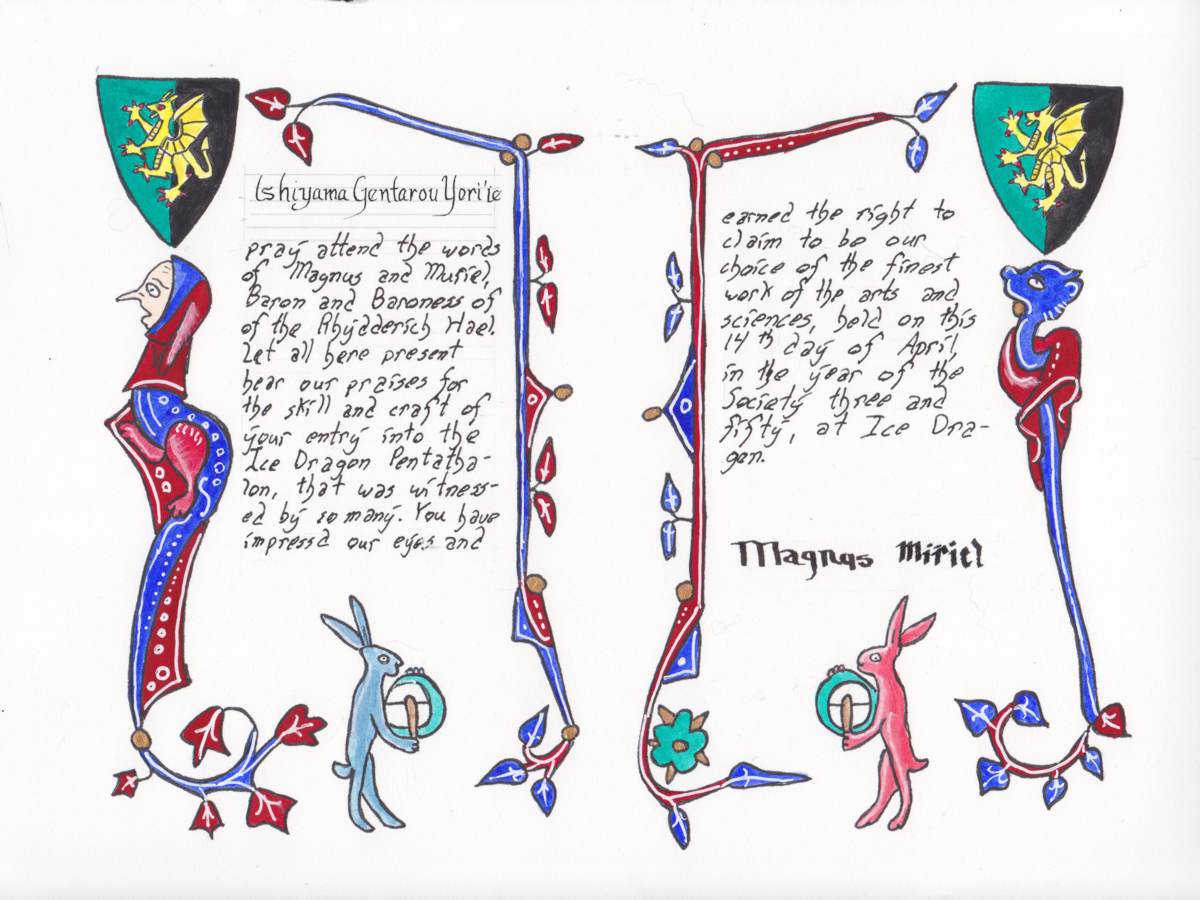 Ishiyama Gentarou Yori'ie
pray attend the words
of Magnus and Muriel,
Baron and Baroness of
of the Rhydderich Hael.
Let all here present
hear our praises for
the skill and craft of
your entry into the
Ice Dragon Pentatha-
lon, that was witness-
ed by so many. You have
impressd our eyes and
earned the right to
claim to be our
choice of the finest
work of the arts and
sciences, held on this
14th day of April,
in the year of the
Society three and
fifty, at Ice Dra-
gon.
Magnus Miriel